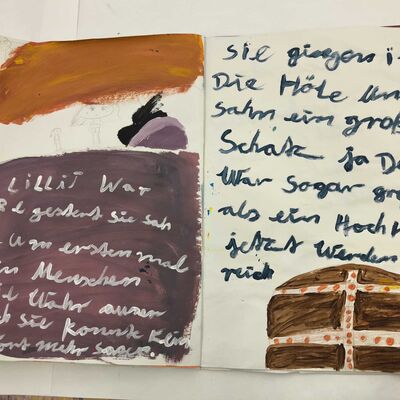 LiLLii War
gestent Sie Sah
um ersten mal
Menschen
Wahr ausen
Sie konnte kein
mehr sagen.
sie gingen i
Die Höle un
sahn ein groß
Schatz ja Da
War sogar gro
als ein Hoch H
jetzt werden
reich